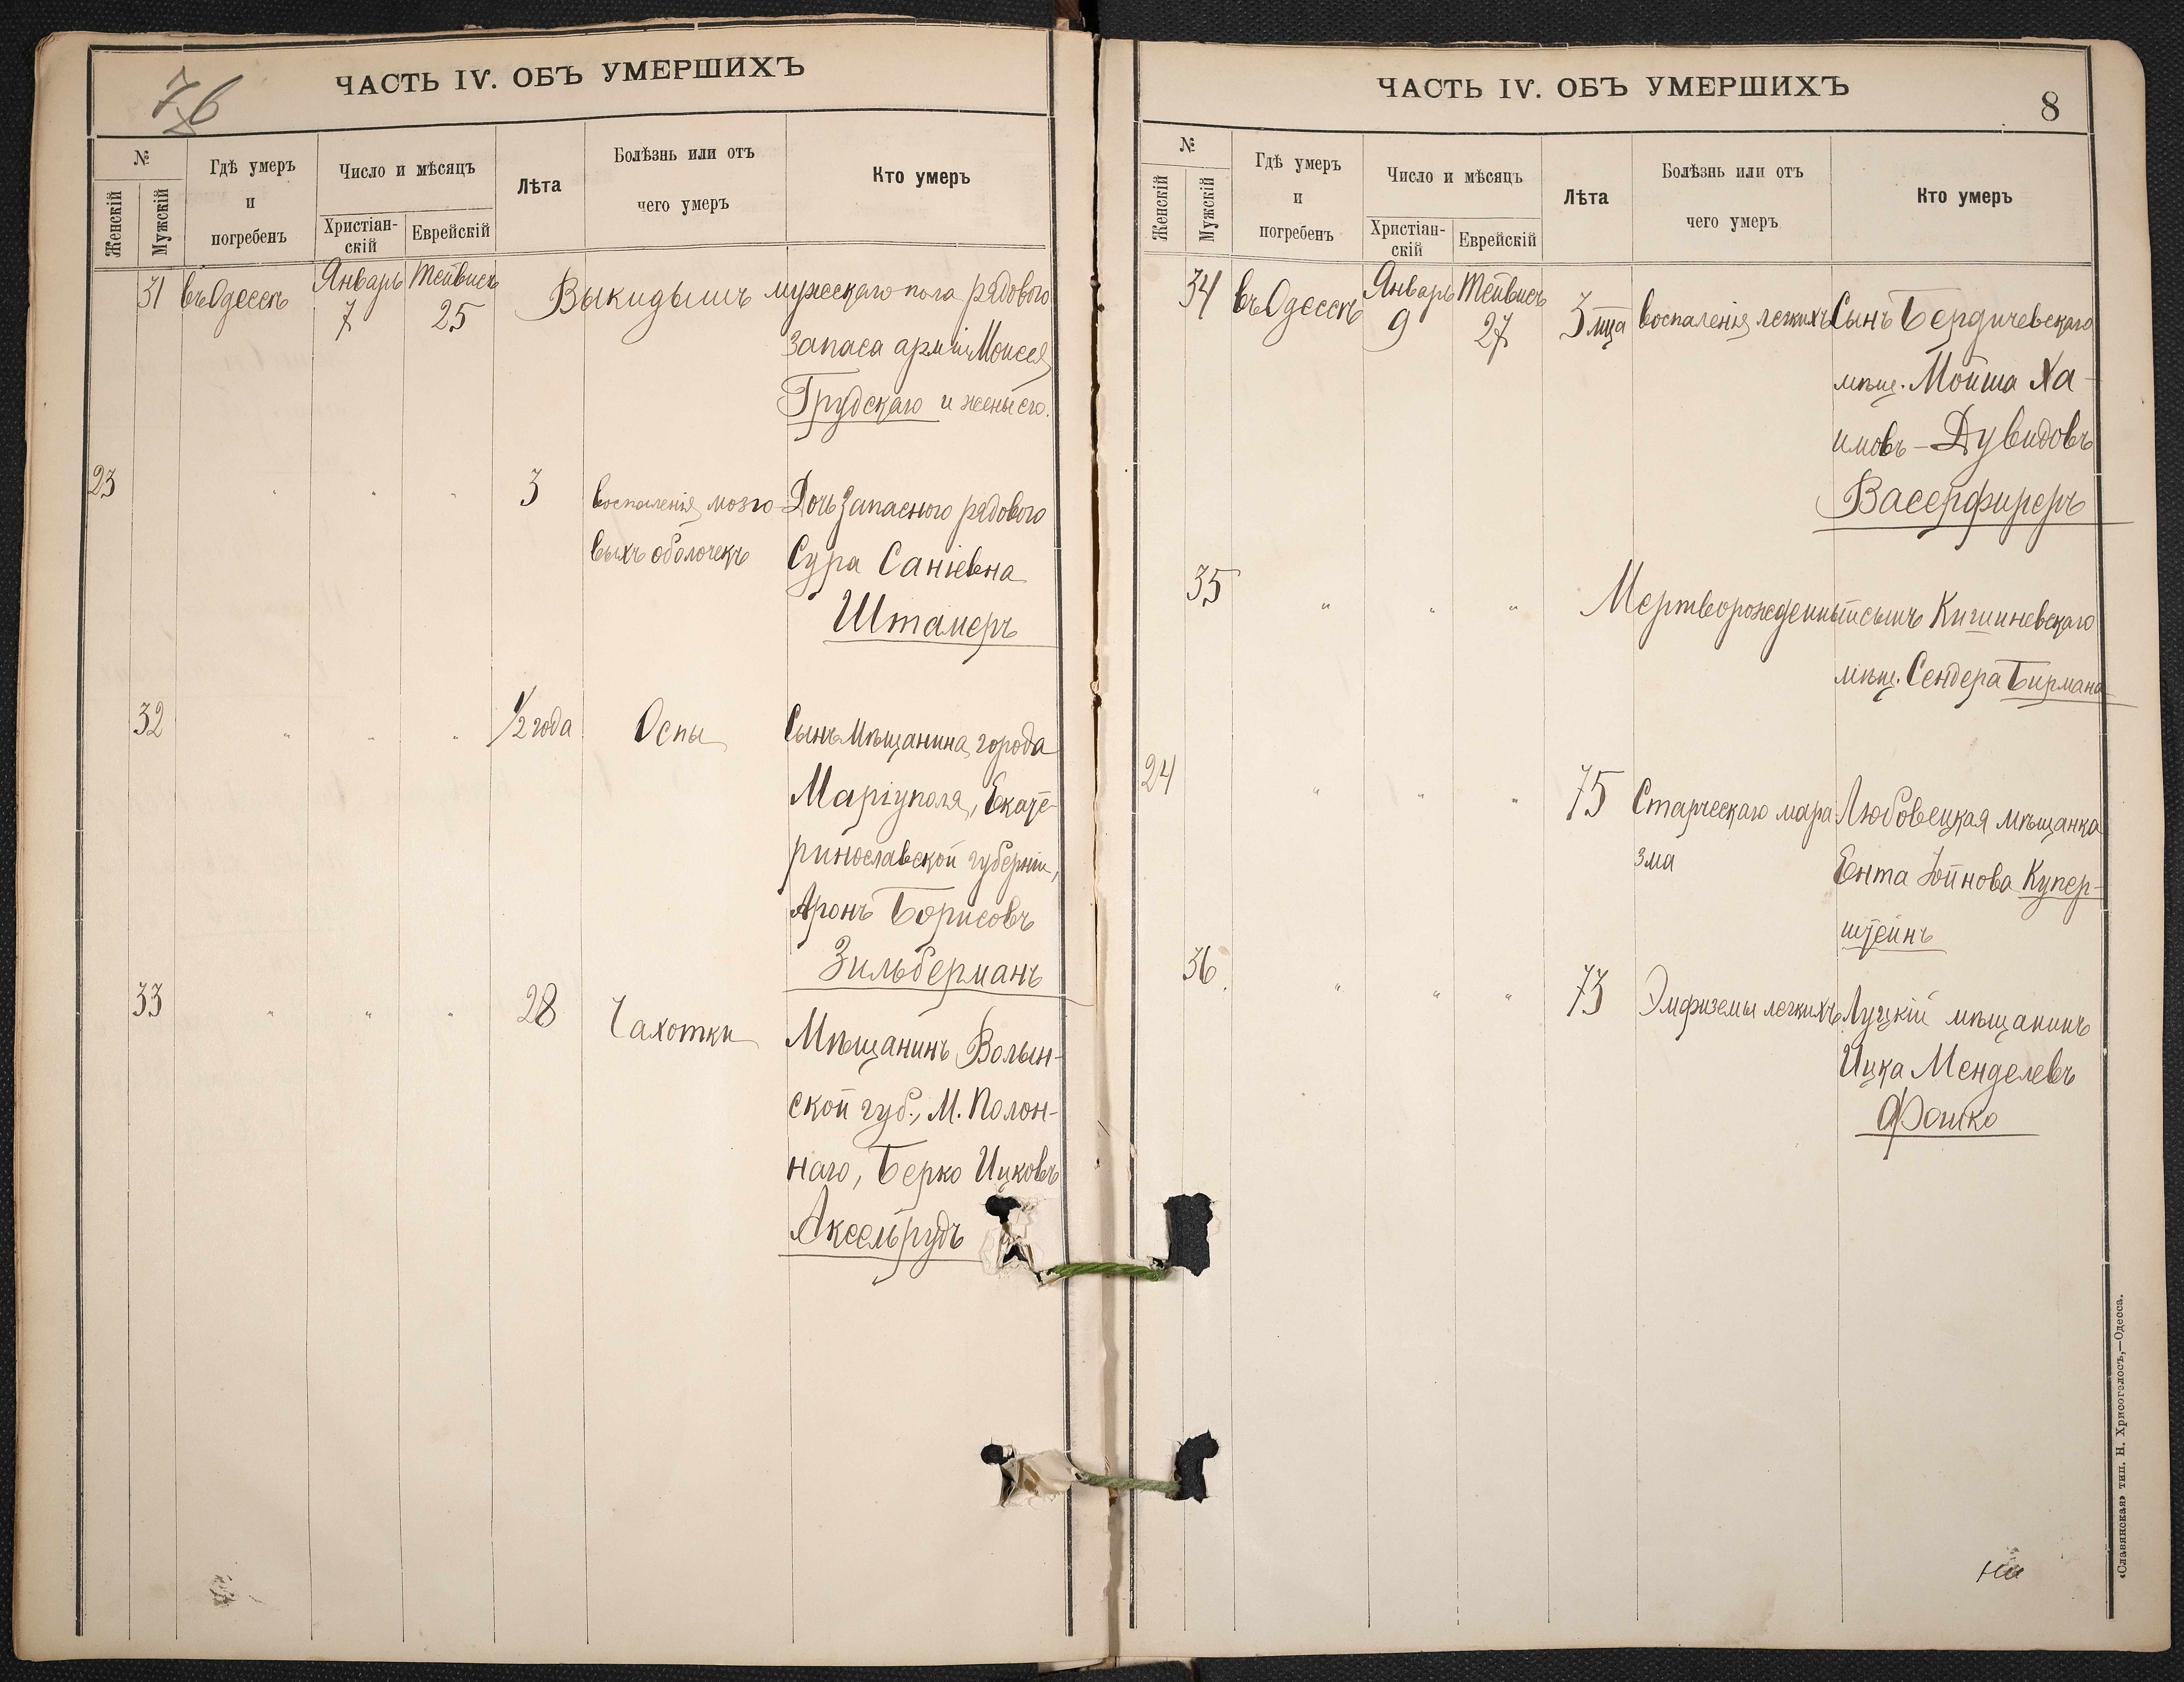 ЧАСТЬ IV. ОБЪ УМЕРШИХЪ
76
№
Женскій
Мужскій
Гдѣ умеръ
и
погребенъ
Число и мѣсяцъ
Христіан-
скій
Еврейскій
Лѣта
Болѣзнь или отъ
чего умеръ
Кто умеръ
31 въ Одессѣ Январь 7 Тейвисъ 25 Выкидышъ мужескаго пола рядового
запаса арміи Моисея
Грудскаго и жены его.
23 " " " 3 воспаленія мозго- Дочь Запасного рядового
выхъ оболочекъ Сура Саніевна
Штамеръ
32 " " " 1/2 года Оспы Сынъ мѣщанина города
Маріуполя, Екате-
ринославской губерніи,
Аронъ Борисовъ
Зильберманъ
33 " " " 28 Чахотки Мѣщанинъ Волын-
ской губ., М. Полон-
наго, Берко Ицковъ
Аксельрудъ
ЧАСТЬ IV. ОБЪ УМЕРШИХЪ
8
№
Женскій
Мужскій
Гдѣ умеръ
и
погребенъ
Число и мѣсяцъ
Христіан-
скій
Еврейскій
Лѣта
Болѣзнь или отъ
чего умеръ
Кто умеръ
34 въ Одессѣ Январь 9 Тейвисъ 27 3 мца воспаленія легкихъ Сынъ Бердичевскаго
мѣщ. Мойша Ха-
имовъ-Дувидовъ
Васерфиреръ
35 " " " Мертворожденный сынъ Кишиневскаго
мѣщ. Сендера Бирмана
24 " " " 75 Старческаго мара- Любовецкая мѣщанка
зма Ента Юйнова Купер-
штейнъ
36 " " " 73 Эмфиземы легкихъ Луцкій мѣщанинъ
Ицка Менделевъ
Фошко
«Славянская» тип. Н. Хрисогелосъ,—Одесса.